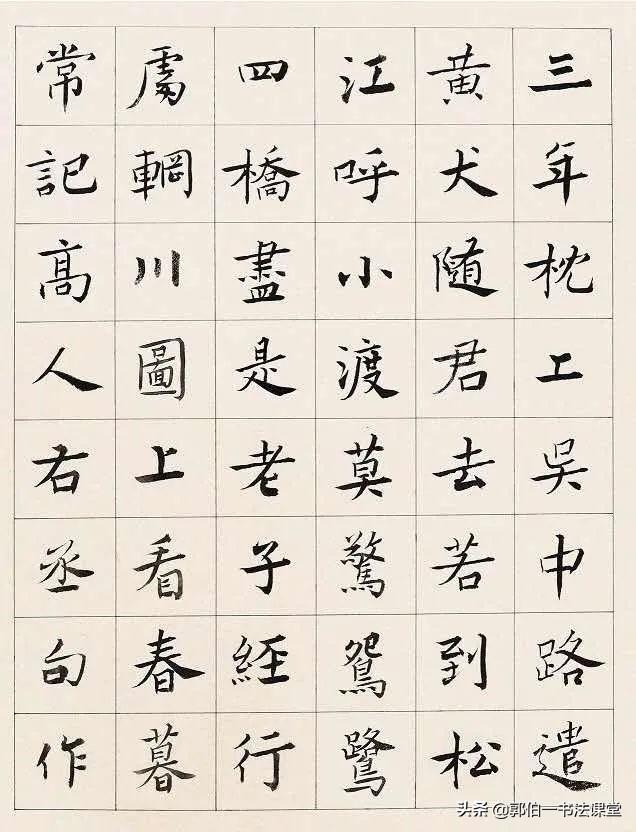 三年枕上吳中路遣
黄犬随君去若到松
江呼小渡莫驚鴛鷺
四橋盡是老子經行
處輞川圖上看春暮
常記高人右丞句作
头条 @郭伯一书法课堂